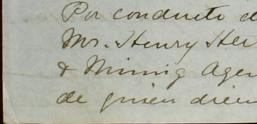 Por conducto d
Mr. Henry Her
& Mining Agen
de quien